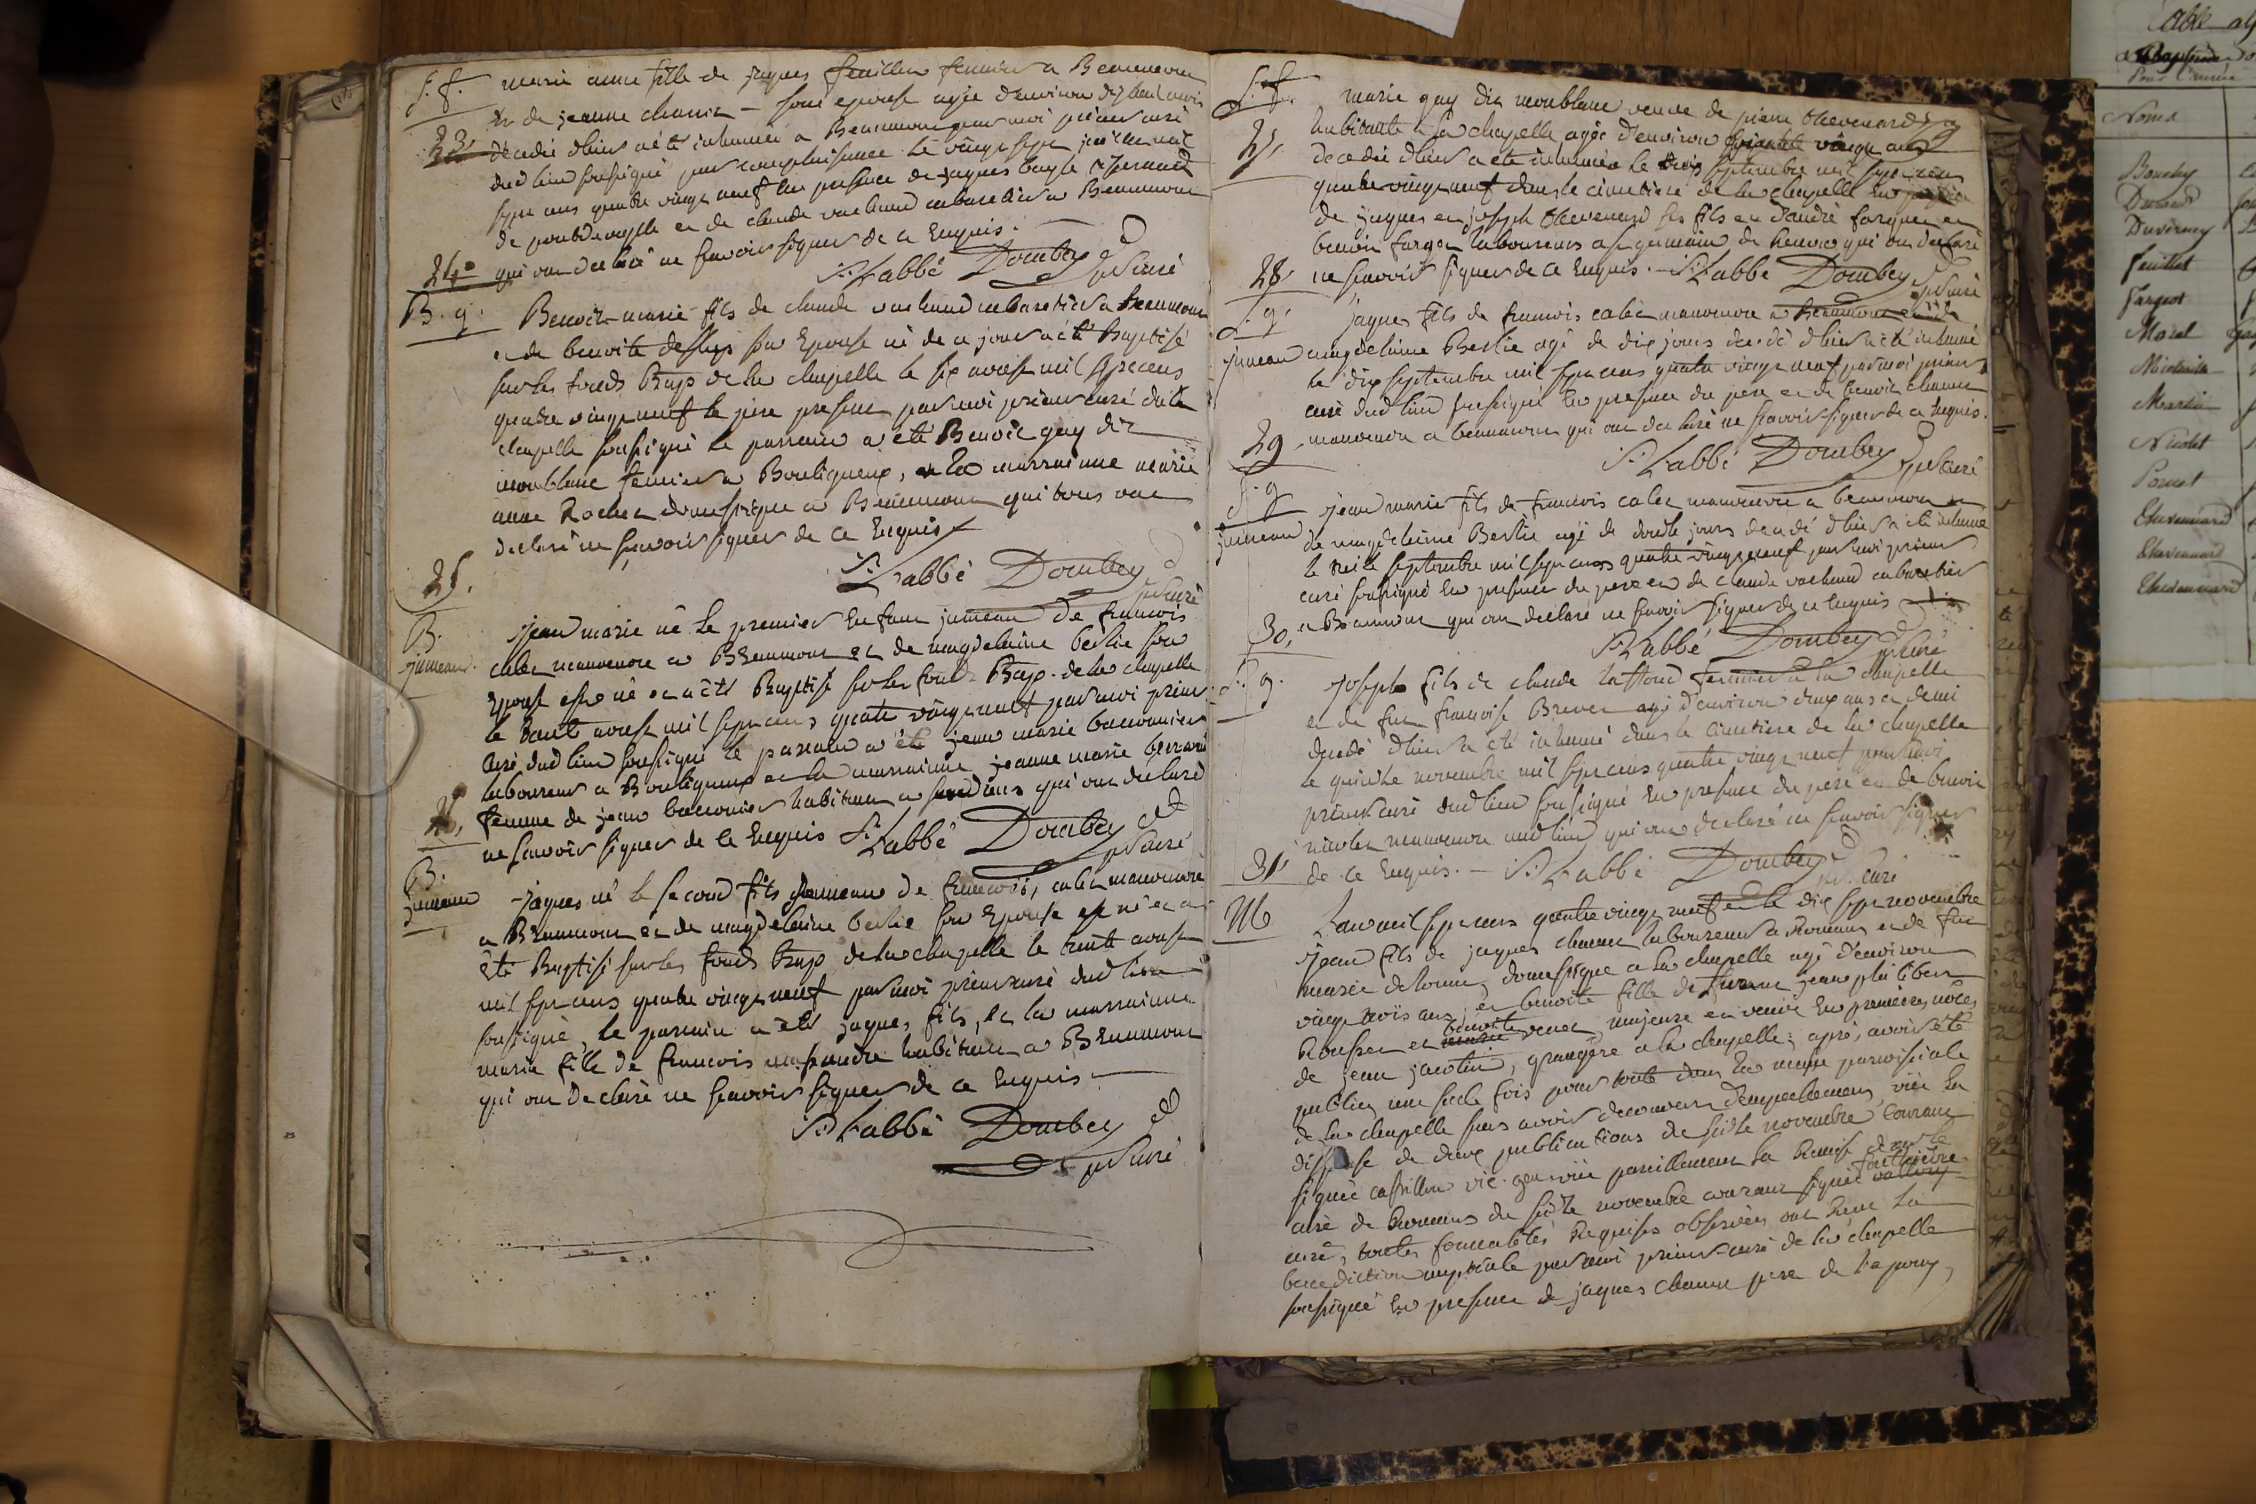 S. f.
23.
marie anne fille de jaques feuillet fermier a Beaumon
et de jeanne chanel son epouse agée d'environ dix huit mois
décedée d'hier a été inhumée a Beaumon par moi prieur curé
dud lieu soussigné par complaisance le vingt sept juillet mil
sept cens quatre vingt neuf en presence de jaques
de et de claude vachaud cabaretier a Beaumon
qui ont declaré ne scavoir signer de ce Enquis.
S. Labbé Dombey prcuré
24.
B. g.
Benoit marie fils de claude vachaud cabaretier a Beaumon
et de benoite son Epouse né de ce jour a été Baptisé
sur les fonds Bap de la chapelle le six aoust mil sept cens
quatre vingt neuf le pere present par moi prieur curé de la
chapelle soussigné le parrain a été Benoit guy dit
monblanc fermier a Bouligneux, et la marrainne marie
anne Rochet domestique a Beaumon qui tous ont
declaré ne scavoir signer de ce Enquis
S. Labbé Dombey prcuré
25.
B.
jumeau.
jean marie né le premier Enfant jumeau de francois
calet manouvre a Beaumont et de magdelaine berlie son
Epouse est né et a été Baptisé sur les fonds Bap. de la chapelle
le trente aoust mil sept cens quatre vingt neuf par moi prieur
curé dud lieu soussigné le parrain a été jean marie
laboureur a Bouligneux et la marrainne jeanne marie
femme de jean habitant a qui ont declaré
ne scavoir signer de ce Enquis S. Labbé Dombey prcuré
26.
B.
jumeau
jaques né le second fils jumeau de francois calet manouvre
a Beaumon et de magdelaine berlie son Epouse est né et a
été Baptisé sur les fonds Bap de la chapelle le trente aoust
mil sept cens quatre vingt neuf par moi prieur curé dud lieu
soussigné, le parrain a été jaques fils, et la marrainne
marie fille de francois habitant a Beaumont
qui ont declaré ne scavoir signer de ce Enquis
S. Labbé Dombey prcuré
S. f.
27.
marie guy dit monblanc veuve de pierre thevenard
habitante a la chapelle agée d'environ vingt ans
decedée d'hier a été inhumée le trois septembre mil sept cens
quatre vingt neuf dans le cimetiere de la chapelle en presence
de jaques et joseph thevenard ses fils et d'andré farget et
benoit farget laboureurs a st germain de Renom qui ont declaré
ne scavoir signer de ce Enquis. S. Labbé Dombey prcuré
28.
S. g.
jumeau
jaques fils de francois calet manouvre a Beaumont et de
magdelaine Berlie agé de dix jours decedé d'hier a été inhumé
le dix septembre mil sept cens quatre vingt neuf par moi prieur
curé dud lieu soussigné En presence du pere et de benoit chanel
manouvre a beaumon qui ont declaré ne scavoir signer de ce Enquis.
S. Labbé Dombey prcuré
29.
S. g
jumeau
jean marie fils de francois calet manouvre a beaumon et
de magdelaine Berlie agé de douze jours decedé d'hier a été inhumé
le septembre mil sept cens quatre vingt neuf par moi prieur
curé soussigné En presence du pere et de claude vachaud cabaretier
a Beaumon qui ont declaré ne scavoir signer de ce Enquis
S. Labbé Dombey prcuré
30.
S. g.
joseph fils de claude fermier a la chapelle
et de fut francoise agé d'environ deux ans et demi
decedé d'hier a été inhumé dans le cimetiere de la chapelle
le quinze novembre mil sept cens quatre vingt neuf par moi
prieur curé dud lieu soussigné En presence du pere et de benoit
nicolet manouvre aud lieu qui ont declaré ne scavoir signer
de ce Enquis. S. Labbé Dombey pr. curé
31.
M
L'an mil sept cens quatre vingt neuf et le dix sept novembre
jean fils de jaques chanel laboureur a Romans et de fut
marie domestique a la chapelle agé d'environ
vingt trois ans, et benoite fille de jean
et benoite majeure et veuve En premieres nôces
de jean grangère a la chapelle; après avoir été
publiez une seule fois pour toute dans la messe paroissiale
de la chapelle sans avoir decouvert d'empechement, vüe la
dispense de deux publications de seize novembre courant
signée castillon vic. gen. vüe pareillement la Remise de mr le
curé de Romans du seize novembre courant signée
curé, toutes formalités Requises observées ont Recu la
benediction nuptiale par moi prieur curé de la chapelle
soussigné En presence de jaques chanel pere de l'epoux,
Table
Baptêmes
Noms
Bouchy
Durand
Duvernay
feuillet
Farget
Morel
Martin
Nicolet
Thevennard
Thevennard
Thevennard